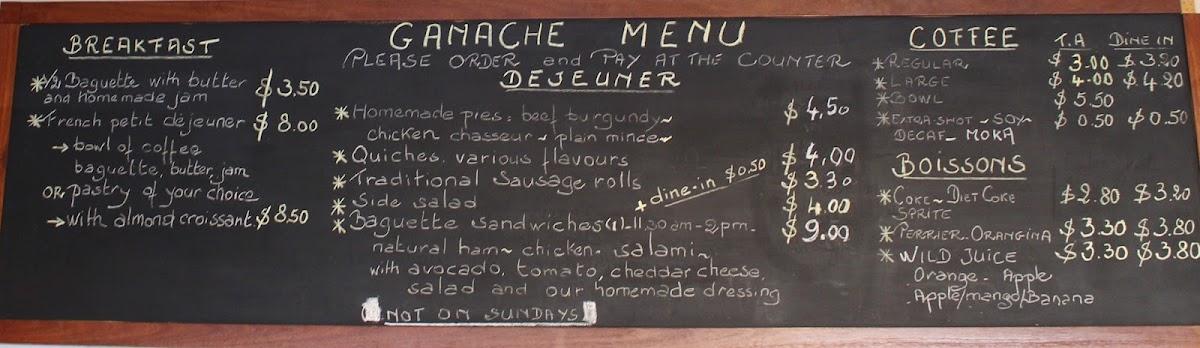 BREAKFAST
*1/2 Baguette with butter $3.50
and homemade jam
*French petit déjeuner $8.00
→bowl of coffee
baguette, butter, jam
OR pastry of your choice
→with almond croissant.$8.50
GANACHE MENU
PLEASE ORDER and PAY AT THE COUNTER
DEJEUNER
*Homemade pies: beef burgundy~ $4.50
chicken chasseur ~ plain mince~
*Quiches. various flavours $4.00
*Traditional Sausage rolls $3.30
+ dine-in $0.50
*Side salad $4.00
*Baguette sandwiches(1).11.30am-2pm. $9.00
natural ham~ chicken~ salami~
with avocado, tomato, cheddar cheese,
salad and our homemade dressing
NOT ON SUNDAYS
COFFEE T.A DINE IN
*REGULAR $3.00 $3.20
*LARGE $4.00 $4.20
*BOWL $5.50
*EXTRA SHOT ~ SOY~ $0.50 $0.50
DECAF_ MOKA
BOISSONS
*COKE~ DIET COKE $2.80 $3.20
SPRITE
*PERRIER_ORANGINA $3.30 $3.80
*WILD JUICE $3.30 $3.80
Orange_ Apple
Apple/mango/Banana